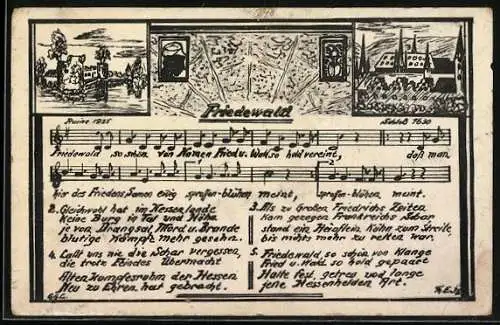 Friedewald
Ruine 1925
Schloß 1630
Friedewald, so schön von Namen Fried u. Wald so hold vereint, daß man
hier des Friedens Samen ewig sprossen-blühen meint, sprossen-blühen meint.
2. Gleichwohl hat im Hessenlande
keine Burg in Tal und Höhe
je von Drangsal, Mord u. Brande
blutige Kämpfe mehr gesehn.
3. Als zu Großen Friedrichs Zeiten
kam gezogen Frankreichs Schar
stand ein Häuflein kühn zum Streite,
bis nichts mehr zu retten war.
4. Laßt uns nie die Schar vergessen,
die trotz Feindes Übermacht
Alten Kampfesruhm der Hessen
Neu zu Ehren hat gebracht.
5. Friedewald, so schön von Klange
Fried u. Wald so hold gepaart
Halte fest, getreu und lange
jene Hessenhelden Art.